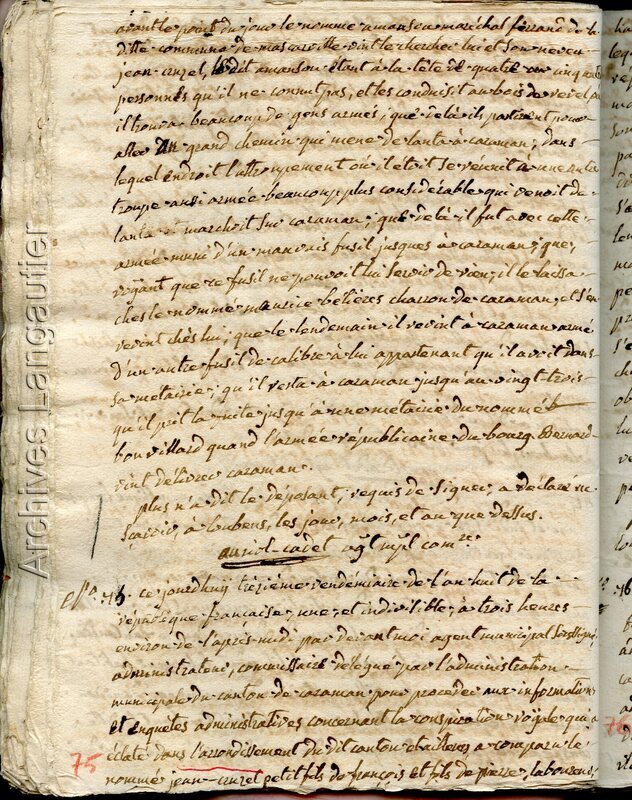 avant le point du jour le nommé amanson marechal ferrand de la
ditte commune de mascarville vint le chercher lui et son neveu
jean cruzel, le dit amanson étant à la tête de quatre ou cinq autres
personnes qu'il ne connut pas, et les conduisit au bois de
il trouva beaucoup de gens armés, que delà ils partirent pour
aller au grand chemin qui mene de lanta à caraman, dans
lequel endroit l'attroupement où il étoit se réunit à une autre
troupe aussi armée beaucoup plus considérable qui venoit de
lanta et marchoit sur caraman; que delà il fut avec cette
armée muni d'un mauvais fusil jusques à caraman; que,
voyant que ce fusil ne pouvoit lui servir de rien, il le laissa
chès le nommé maurice belières charron de caraman, et s'en
revint chès lui; que le lendemain il revint à caraman armé
d'un autre fusil de calibre à lui appartenant qu'il avoit dans
sa metairie; qu'il resta à caraman jusqu'au vingt-trois
qu'il prit la fuite jusqu'à une métairie du nommé
bouvillard quand l'armée républicaine du bourg Bernard
vint délivrer caraman.
plus n'a dit le déposant, requis de signer, a déclaré ne
sçavoir, à loubens, les jour, mois, et an que dessus.
auriol-cadet agt mpl comre.
ce jourdhuy trezième vendemiaire de l'an huit de la
république française, une, et indivisible, à trois heures
environ de l'après-midi par devant moi agent municipal soussigné
administrateur, commissaire délégué par l'administration
municipale du canton de caraman pour procéder aux informations
et enquêtes administratives concernant la conspiration royale qui a
éclaté dans l'arrondissement du dit canton et ailleurs a comparu le
75
nommé jean cruzel petit fils de françois et fils de pierre, laboureur,
76
Archives Langautier